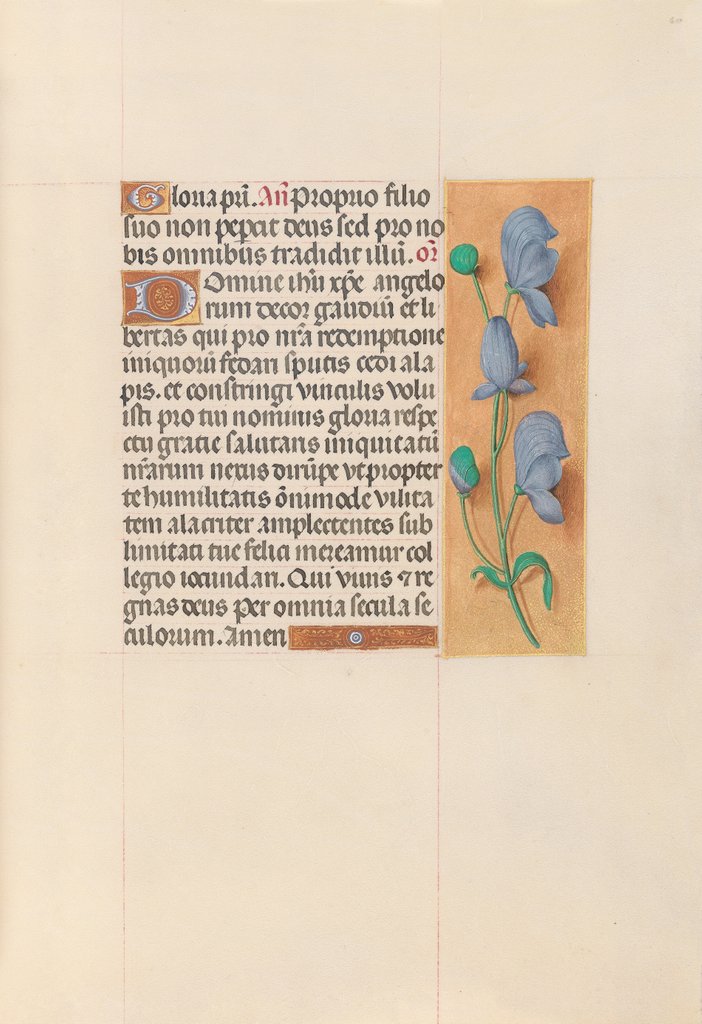 Gloria pri. An̄ Proprio filio
suo non pepercit deus sed pro no
bis omnibus tradidit illū. or̄
Domine ihū xpe angelo
rum decor gaudiū et li
bertas qui pro nr̄a redemptione
iniquorū fedari sputis cedi ala
pis. et constringi vinculis volu
isti pro tui nominis gloria respe
ctu gracie salutaris iniquitatū
nr̄arum nexus dirūpe vt propter
te humilitatis ōnimode vilita
tem alacriter amplectentes sub
limitati tue felici mereamur col
legio iocundari. Qui viuis ⁊ re
gnas deus Per omnia secula se
culorum. Amen